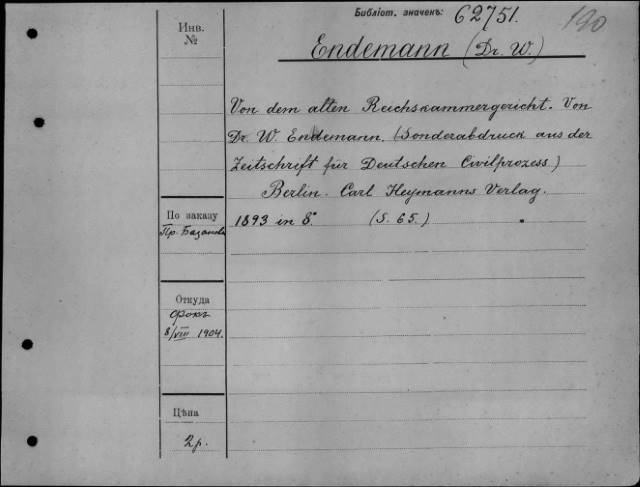 Библіот. значекъ: 62751.
190
Инв.
№
Endemann (Dr. W.)
Von dem alten Reichskammergericht. Von
Dr. W. Endemann. (Sonderabdruck aus der
Zeitschrift für Deutschen Civilprozess.)
Berlin. Carl Heymanns Verlag.
1893 in 8°. (S. 65.)
По заказу
Пр. Базанова
Откуда
Фокъ
8/VIII 1904.
Цѣна
2 р.